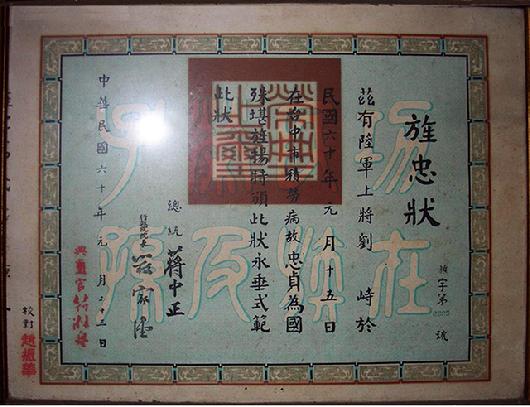 旌忠狀
字第
號
茲有陸軍上將劉 峙於
民國六十年元月十五日
在台中市積勞病故忠貞為國
殊堪旌揚特頒此狀永垂式範
此狀
總統 蔣中正
行政院長 嚴家淦
中華民國六十年元月二十三日
典璽官
校對 趙振華